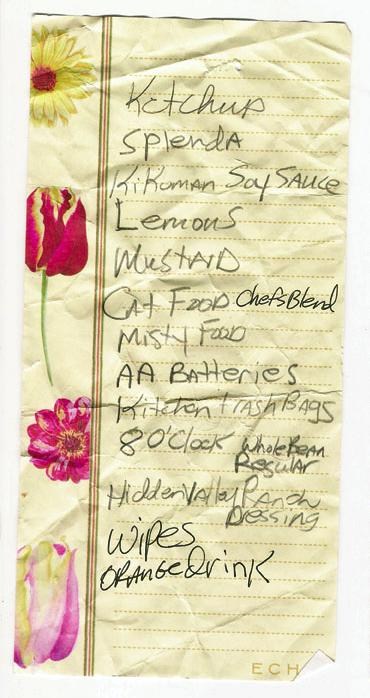 Ketchup
Splenda
Kikoman Soy Sauce
Lemons
Mustard
Cat Food Chefs Blend
Misty Food
AA Batteries
Kitchen trash Bags
8 O'Clock Whole Bean
Regular
Hidden Valley Ranch
Dressing
Wipes
Orange Drink
ECH